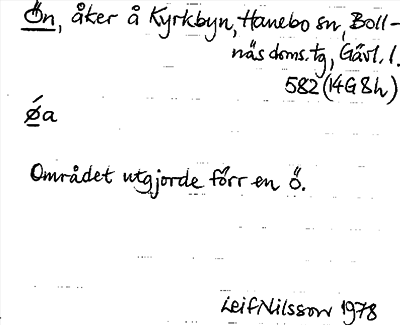 Ön, åker å Kyrkbyn, Hanebo sn, Boll-
näs doms. tg, Gävl. l.
582 (14G8h)
ǿa
Området utgjorde förr en ö.
Leif Nilsson 1978